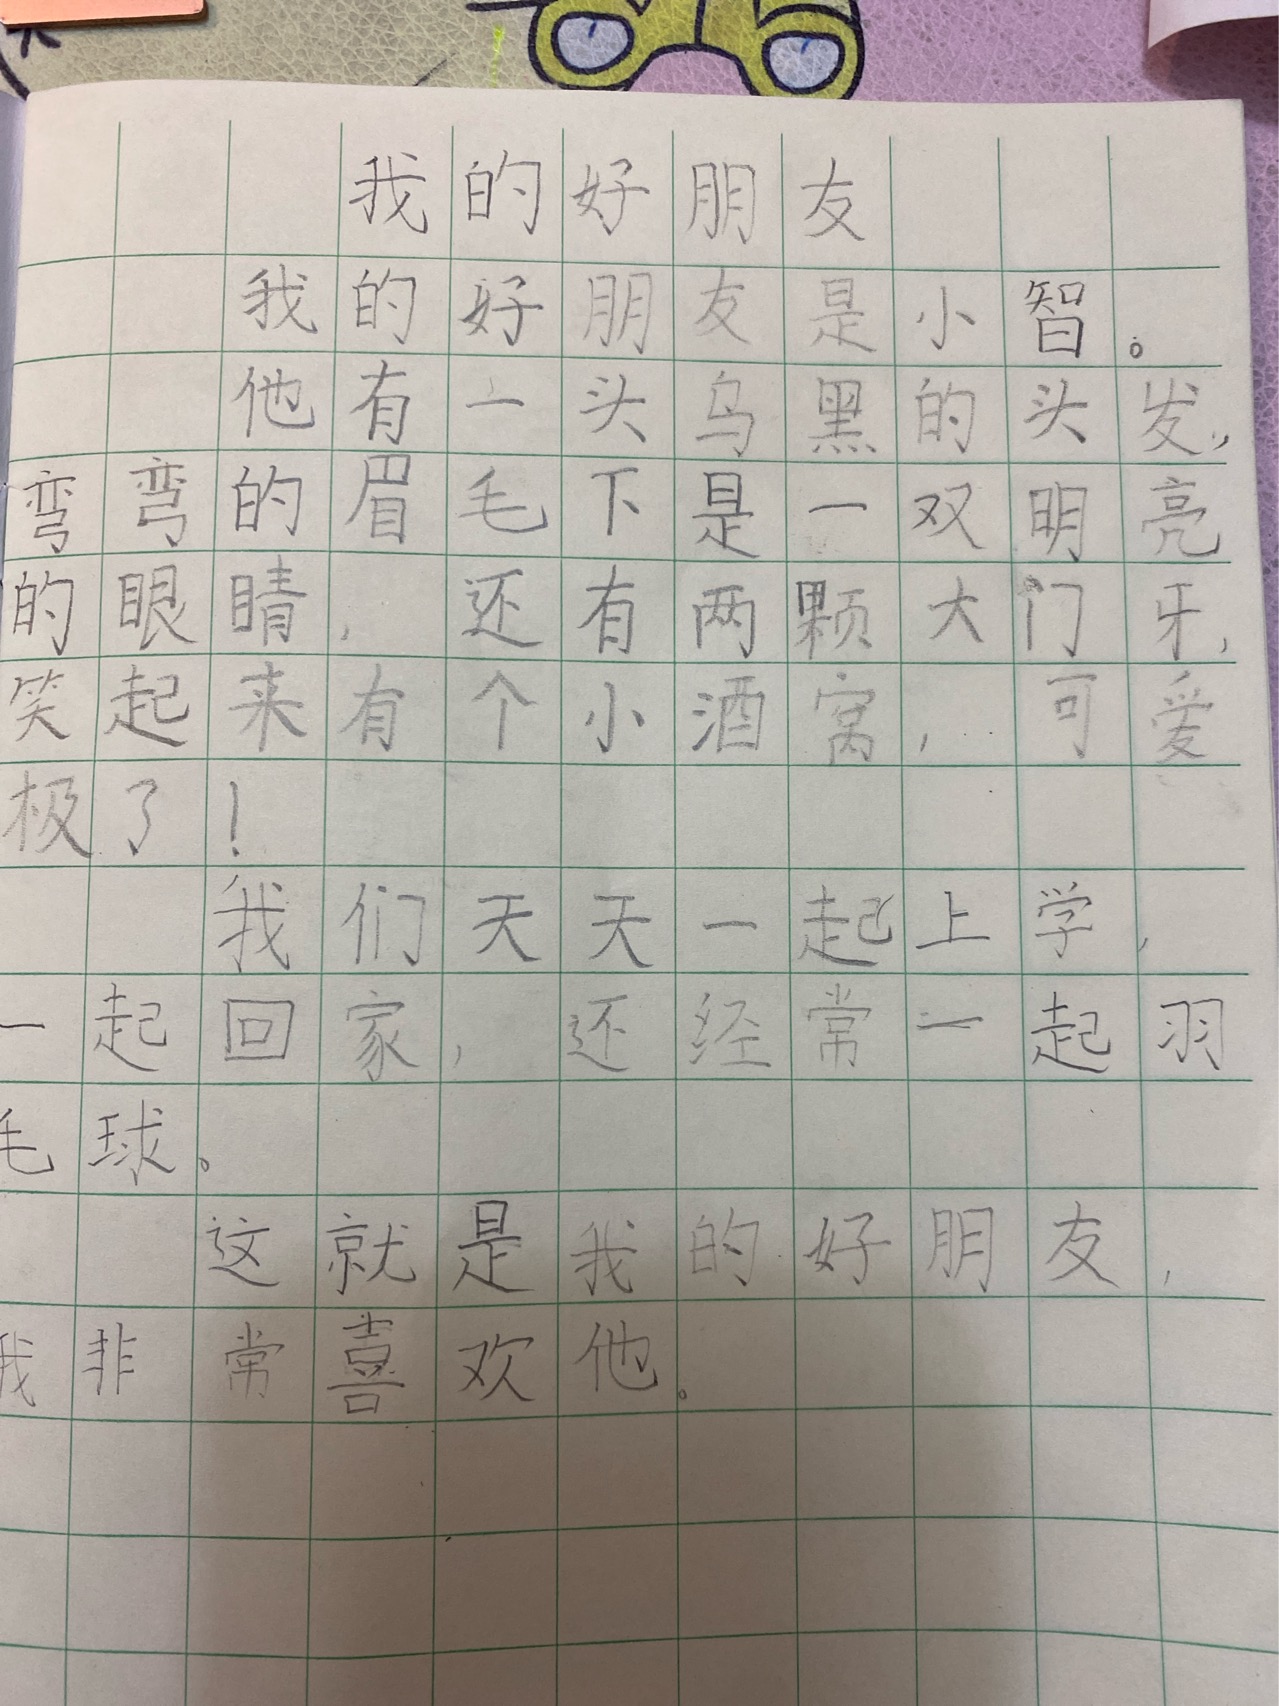 我的好朋友
我的好朋友是小智。
他有一头乌黑的头发,
弯弯的眉毛下是一双明亮
的眼睛,还有两颗大门牙,
笑起来有个小酒窝,可爱
极了!
我们天天一起上学,
一起回家,还经常一起羽
毛球。
这就是我的好朋友,
我非常喜欢他。